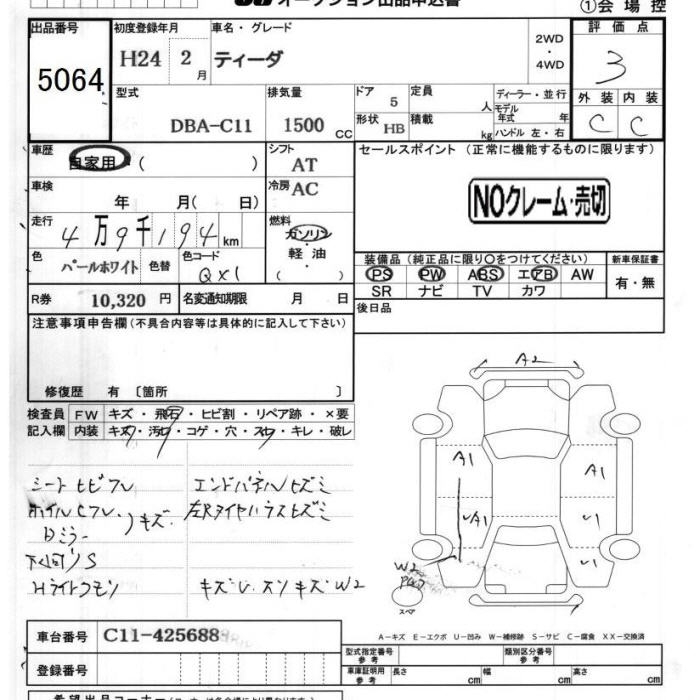 オークション出品申込書
①会場控
出品番号 初度登録年月 車名・グレード 評価点
5064 H24 2月 ティーダ 2WD・4WD 3
型式 排気量 ドア 定員 ディーラー・並行 外装 内装
DBA-C11 1500 CC 5 人 モデル年式 年 C C
形状 HB 積載 kg ハンドル 左・右
車歴 自家用・( ) シフト AT セールスポイント (正常に機能するものに限ります)
車検 年 月( 日) 冷房 AC NOクレーム・売切
走行 4万9千194km 燃料 ガソリン・軽油・( )
色 パールホワイト 色替 色コード QX1
装備品(純正品に限り〇をつけてください) 新車保証書
PS PW ABS エアB AW 有・無
SR ナビ TV カワ
R券 10,320円 名変通知期限 月 日
後日品
注意事項申告欄(不具合内容等は具体的に記入して下さい)
修復歴 有〔箇所 〕
検査員 FW キズ・飛石・ヒビ割・リペア跡・×要
記入欄 内装 キズ・汚レ・コゲ・穴・スレ・キレ・破レ
エンドパネルヒズミ
キズ
Dミラー
Hライトクモリ
キズU.スリキズW2
A2
A1 A1
A1
W2
スペア
A-キズ E-エクボ U-凹み W-補修跡 S-サビ C-腐食 XX-交換済
車台番号 C11-425688
登録番号
型式指定番号 参考 類別区分番号 参考
車庫証明用 参考 長さ cm 幅 cm 高さ cm